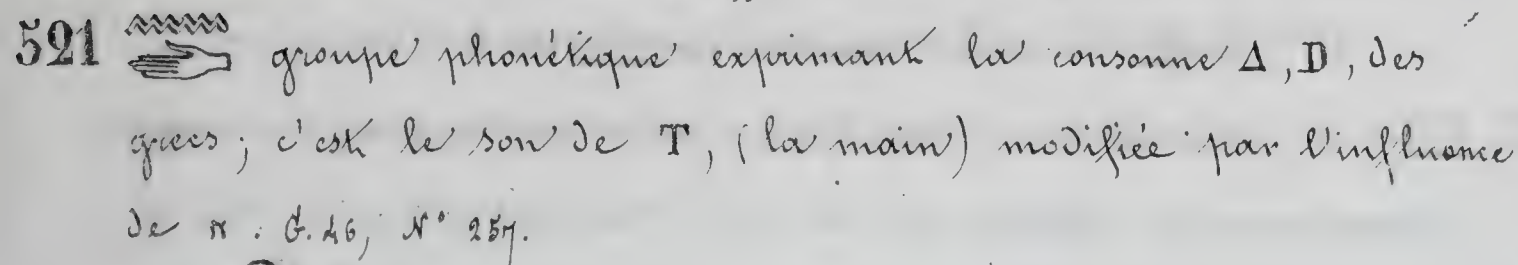 521 𓈖𓂧 groupe phonétique exprimant la consonne Δ, D, des
grecs ; c'est le son de T, (la main) modifiée par l'influence
de n . G. 46, N° 257.